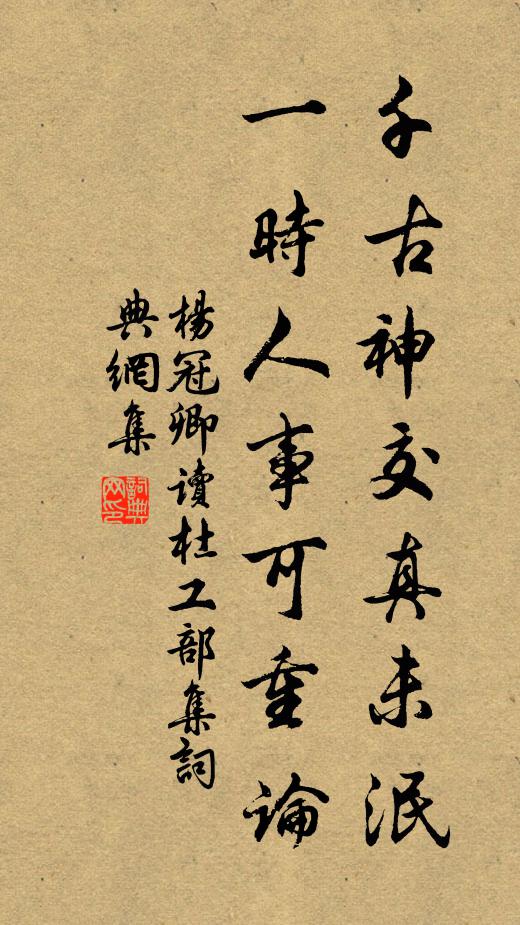 千古神交真未泯
一時人事可重論
楊冠卿讀杜工部集詞
典網集
詞典網印